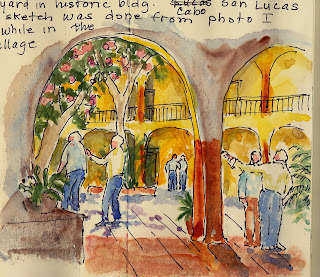 yard in historic bldg. Cabo San Lucas
sketch was done from photo I
while in the
illage